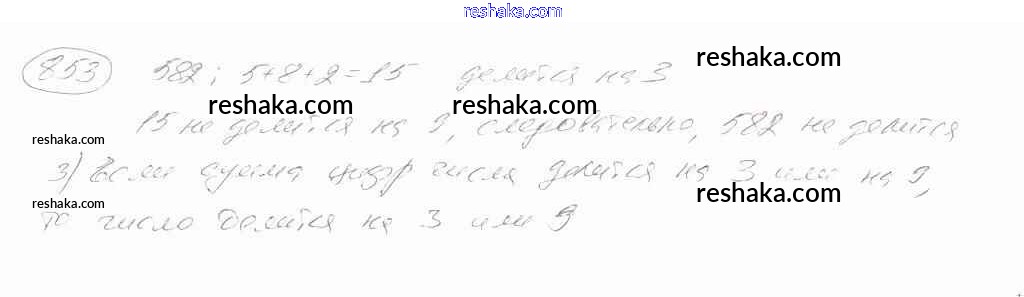 reshaka.com
853 582; 5+8+2=15 делится на 3
reshaka.com
reshaka.com reshaka.com
15 не делится на 9, следовательно, 582 не делится
reshaka.com
3) Если сумма цифр числа делится на 3 или на 9,
reshaka.com
reshaka.com
то число делится на 3 или 9